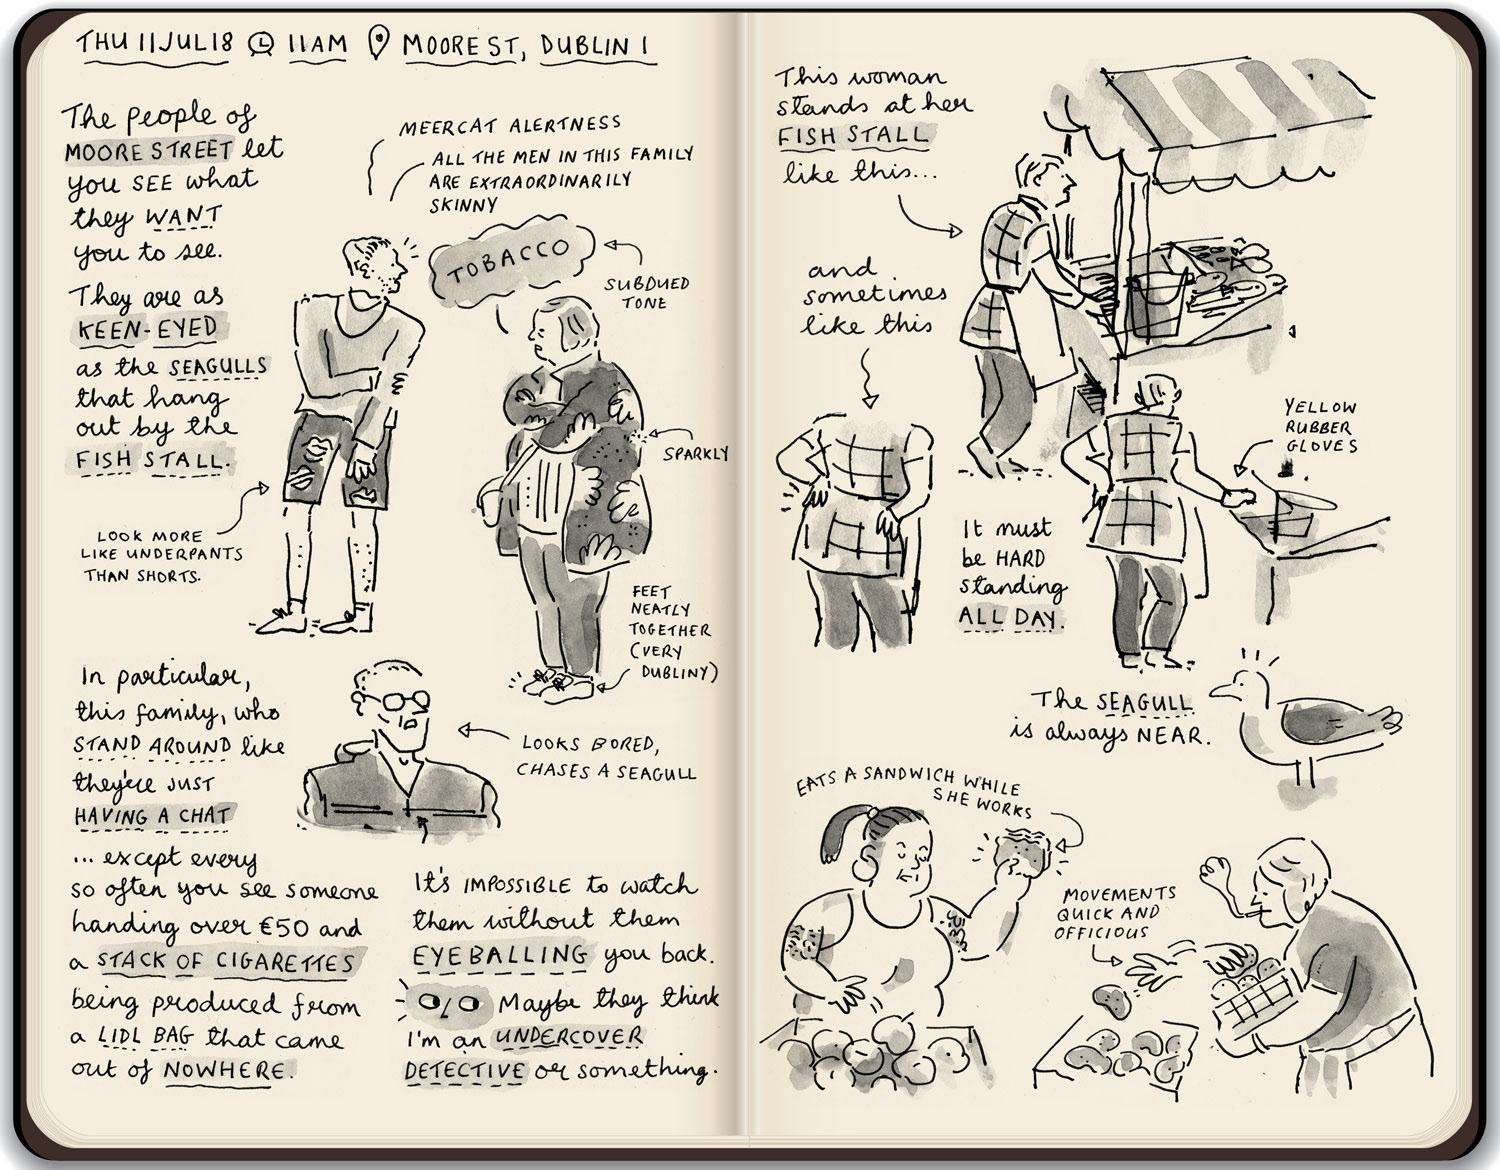 THU 11 JUL 18 11AM MOORE ST, DUBLIN 1
The people of
MOORE STREET let
you SEE what
they WANT
you to see.
They are as
KEEN-EYED
as the SEAGULLS
that hang
out by the
FISH STALL.
MEERCAT ALERTNESS
ALL THE MEN IN THIS FAMILY
ARE EXTRAORDINARILY
SKINNY
TOBACCO
SUBDUED
TONE
SPARKLY
LOOK MORE
LIKE UNDERPANTS
THAN SHORTS.
FEET
NEATLY
TOGETHER
(VERY
DUBLINY)
In particular,
this family, who
STAND AROUND like
they're JUST
HAVING A CHAT
... except every
so often you see someone
handing over €50 and
a STACK OF CIGARETTES
being produced from
a LIDL BAG that came
out of NOWHERE.
LOOKS BORED,
CHASES A SEAGULL
It's IMPOSSIBLE to watch
them without them
EYEBALLING you back.
Maybe they think
I'm an UNDERCOVER
DETECTIVE or something.
This woman
stands at her
FISH STALL
like this...
and
sometimes
like this
YELLOW
RUBBER
GLOVES
It must
be HARD
standing
ALL DAY.
The SEAGULL
is always NEAR.
EATS A SANDWICH WHILE
SHE WORKS
MOVEMENTS
QUICK AND
OFFICIOUS